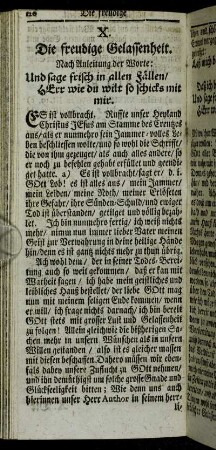 Die freudige
X.
Die freudige Gelassenheit.
Nach Anleitung der Worte:
Und sage frisch in allen Fällen/
HErr wie du wilt so schicks mit
mir.
ES ist vollbracht. Ruffte unser Heyland
Christus JEsus am Stamme des Creutzes
aus/ als er nunmehro sein Jammer-volles Le-
ben beschliessen wolte/und so wohl die Schrifft/
die von ihm gezeuget/als auch alles andere/ so
er noch zu befehlen gehabt erfüllet und geendi-
get hatte. a) Es ist vollbracht/sagt er/ d. i.
GOtt Lob! es ist alles aus/ mein Jammer/
mein Leiden/ meine Noth/ meiner Erlöseten
ihre Gefahr/ ihre Sünden-Schuld/und ewiger
Tod ist überstanden/ getilget und völlig bezah-
let. Ich bin nunmehro fertig/ ich weiß nichts
mehr/ nimm nun immer lieber Vater meinen
Geist zur Verwahrung in deine heilige Hände
hin/denn es ist gang nichts mehr zu thun übrig.
Ach wohl dem/ der in seiner Todes-Berei-
tung auch so weit gekommen/ daß er kan mit
Warheit sagen/ ich habe mein geistliches und
leibliches Hauß bestellet/ der liebe GOtt mag
nun mit meinem seligen Ende kommen/ wenn
er will/ ich frage nichts darnach/ ich bin bereit
GOtt stets mit grosser Lust und Gelassenheit
zu folgen! Allein gleichwie die bißherigen Sa-
chen mehr in unsern Wünschen als in unsern
Willen gestanden/ also ist es gleicher massen
mit diesen beschaffen. Dahero müssen wir eben-
fals dabey unsere Zuflucht zu GOtt nehmen/
und ihn demüthigst um solche grosse Gnade und
Glückseeligkeit bitten; Wie denn uns auch
hierinnen unser Herr Author in seinem herr-
li-